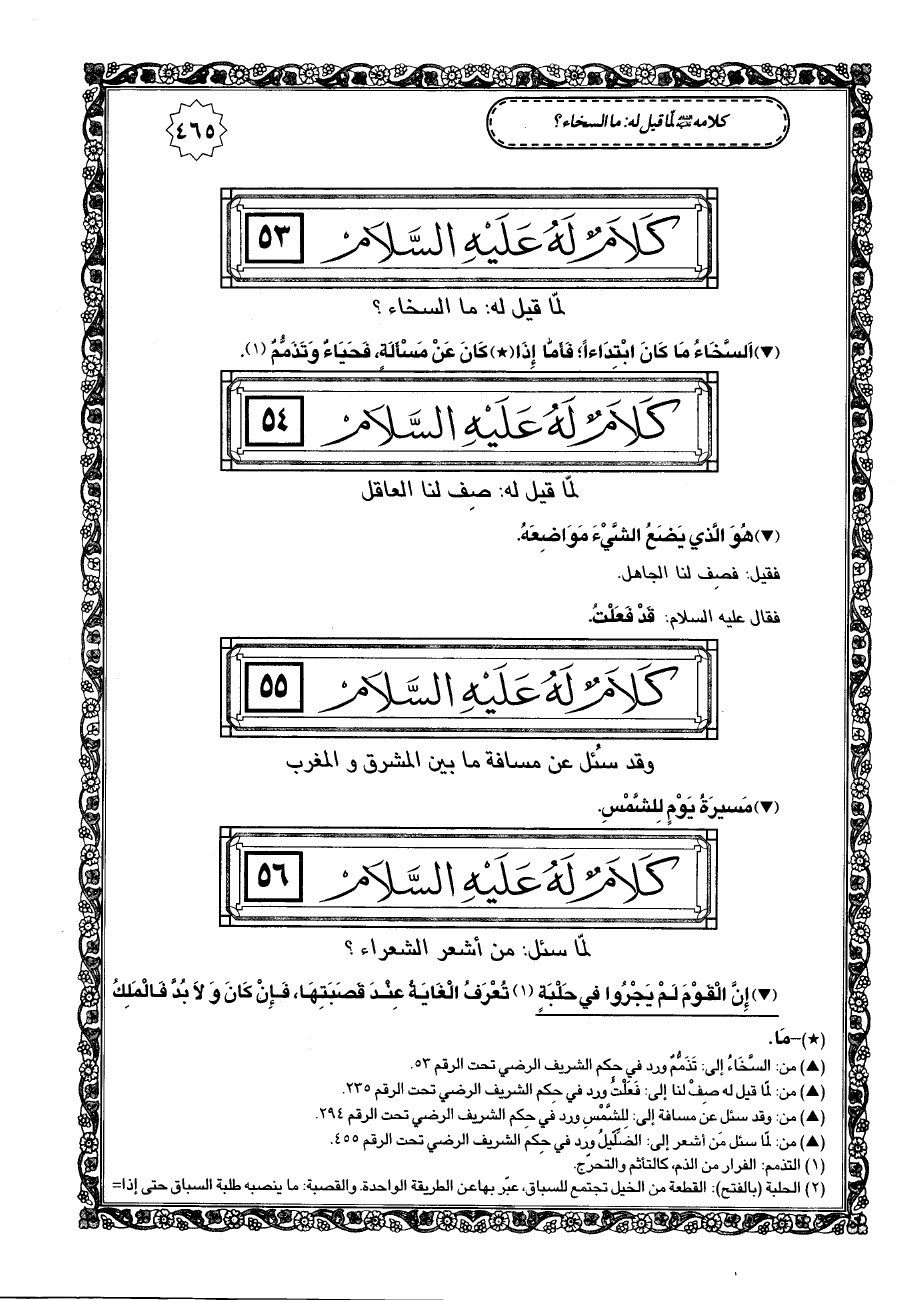 كلامه ﷺ لمّا قيل له: ما السخاء؟
٤٦٥
كَلَامٌ لَهُ عَلَيْهِ السَّلَامُ ٥٣
لمّا قيل له: ما السخاء ؟
(▼) اَلسَّخَاءُ مَا كَانَ ابْتِدَاءاً؛ فَأَمَّا إِذَا(★) كَانَ عَنْ مَسْأَلَةٍ، فَحَيَاءٌ وَتَذَمُّمٌ (١).
كَلَامٌ لَهُ عَلَيْهِ السَّلَامُ ٥٤
لمّا قيل له: صِف لنا العاقل
(▼) هُوَ الَّذي يَضَعُ الشَّيْءَ مَوَاضِعَهُ.
فقيل: فصِف لنا الجاهل.
فقال عليه السلام: قَدْ فَعَلْتُ.
كَلَامٌ لَهُ عَلَيْهِ السَّلَامُ ٥٥
وقد سئُل عن مسافة ما بين المشرق و المغرب
(▼) مَسيرَةُ يَوْمٍ لِلشَّمْسِ.
كَلَامٌ لَهُ عَلَيْهِ السَّلَامُ ٥٦
لمّا سئل: من أشعر الشعراء ؟
(▼) إِنَّ الْقَوْمَ لَمْ يَجْرُوا في حَلْبَةٍ (١) تُعْرَفُ الْغَايَةُ عِنْدَ قَصَبَتِهَا، فَإِنْ كَانَ وَ لاَ بُدَّ فَالْمَلِكُ
(★)–مَا.
(▲) من: السَّخَاءُ إلى: تَذَمُّمٌ ورد في حكم الشريف الرضي تحت الرقم ٥٣.
(▲) من: لمّا قيل له صِفْ لنا إلى: فَعَلْتُ ورد في حِكم الشريف الرضي تحت الرقم ٢٣٥.
(▲) من: وقد سئل عن مسافة إلى: لِلشَّمْسِ ورد في حِكم الشريف الرضي تحت الرقم ٢٩٤.
(▲) من: لمّا سئل مَن أشعر إلى: الضِّلّيلُ ورد في حِكم الشريف الرضي تحت الرقم ٤٥٥.
(١) التذمم: الفرار من الذم، كالتأثم والتحرّج.
(٢) الحلبة (بالفتح): القطعة من الخيل تجتمع للسباق، عبّر بها عن الطريقة الواحدة. والقصبة: ما ينصبه طلبة السباق حتى إذا=